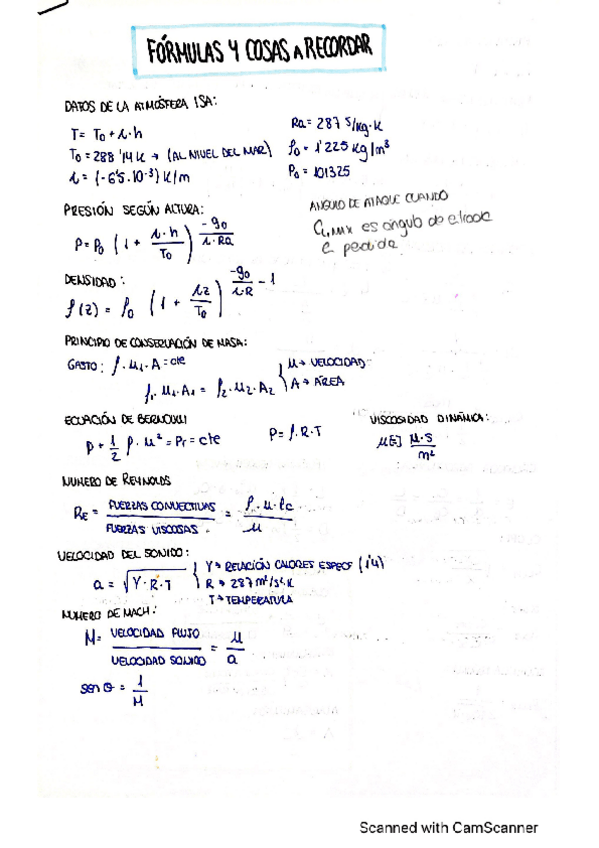 FÓRMULAS Y COSAS A RECORDAR
DATOS DE LA ATMÓSFERA ISA:
T = T₀ + λ·h
T₀ = 288'14 K → (AL NIVEL DEL MAR)
λ = (-6'5·10⁻³) K/m
Ra = 287 J/kg·K
ρ₀ = 1'225 kg/m³
P₀ = 101325
PRESIÓN SEGÚN ALTURA:
P = P₀ (1 + λ·h/T₀)^(-g₀/λ·Ra)
ANGULO DE ATAQUE CUANDO
CL MAX es angulo de
DENSIDAD:
ρ(z) = ρ₀ (1 + λz/T₀)^(-g₀/λ·R - 1)
PRINCIPIO DE CONSERVACIÓN DE MASA:
GASTO: ρ·u₁·A = cte
ρ₁·u₁·A₁ = ρ₂·u₂·A₂
u → VELOCIDAD
A → ÁREA
ECUACIÓN DE BERNOULLI
P + 1/2 ρ·u² = Pt = cte
P = ρ·R·T
VISCOSIDAD DINÁMICA:
μ[=] N·S/m²
NUMERO DE REYNOLDS
Re = FUERZAS CONVECTIVAS/FUERZAS VISCOSAS = ρ·u·lc/μ
VELOCIDAD DEL SONIDO:
a = √γ·R·T
γ → RELACIÓN CALORES ESPECF (1'4)
R → 287 m²/s²·K
T → TEMPERATURA
NUMERO DE MACH:
M = VELOCIDAD FLUJO/VELOCIDAD SONIDO = u/a
sen θ = 1/M
Scanned with CamScanner